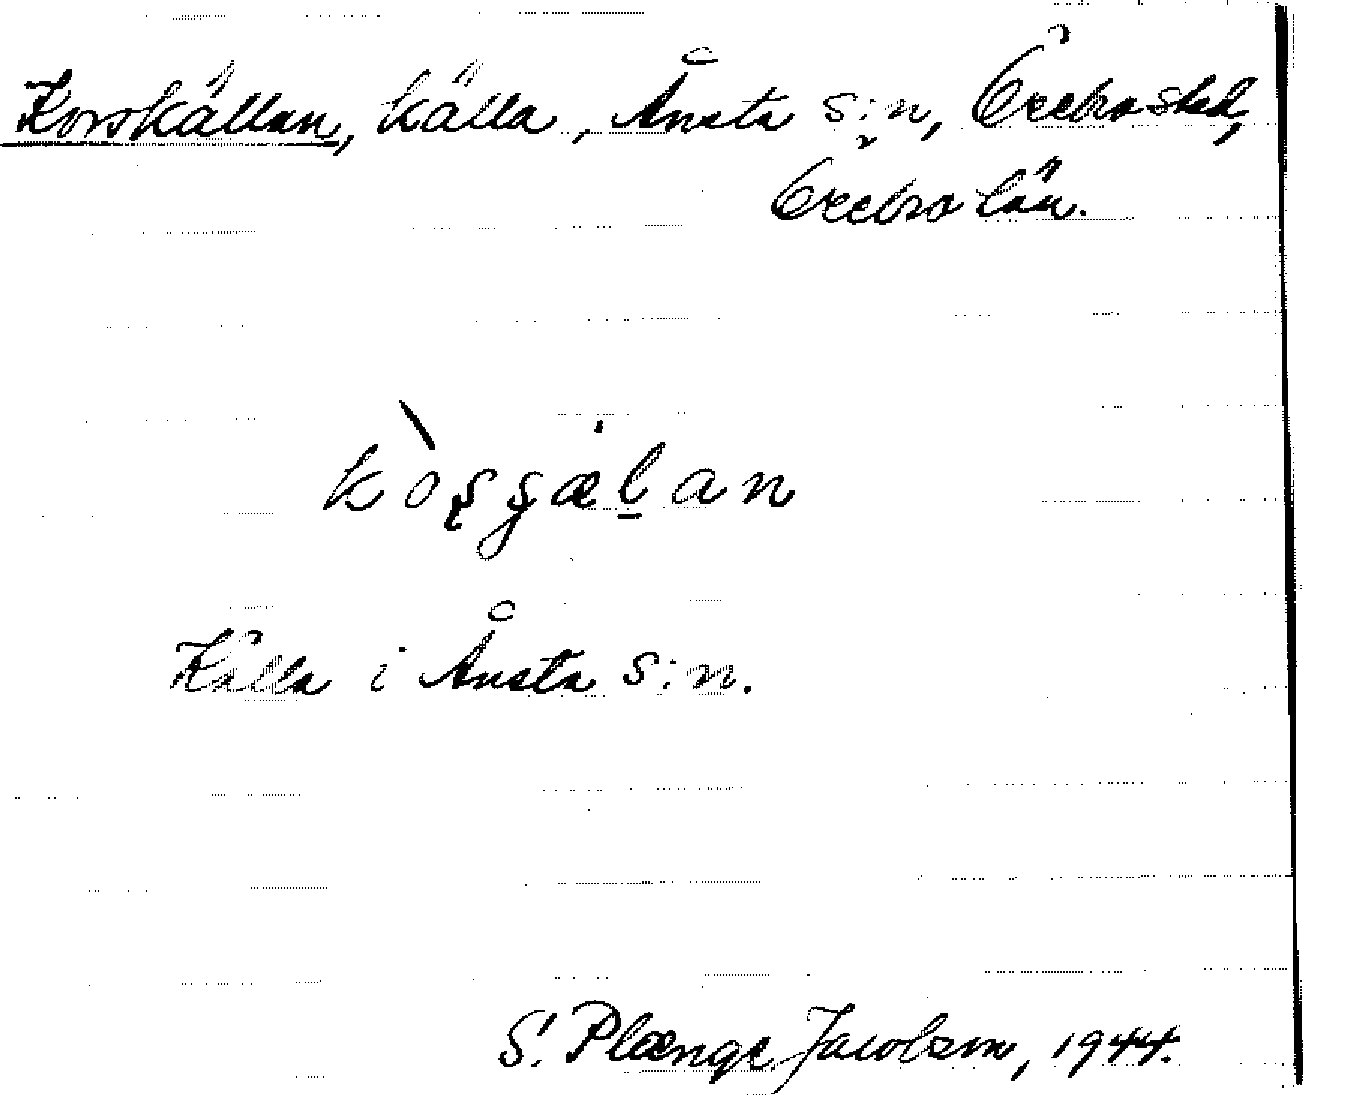 Korskällan, källa, Ånsta s:n, Örebro stad,
Örebro län.
kòʂʂæl̠an
Källa i Ånsta s:n.
S. Plænge Jacobson, 1944.